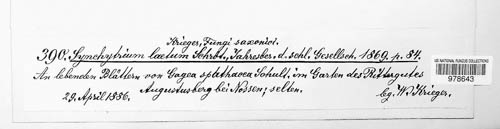 Krieger, Fungi saxonici.
390. Synchytrium laetum Schröt., Jahresber. d. schl. Gesellsch. 1869. p. 84.
An lebenden Blättern von Gagea spathacea Schult., im Garten des Rittergutes
Augustusberg bei Nossen; selten.
29. April 1886.
lg. W. Krieger.
US NATIONAL FUNGUS COLLECTIONS
978643